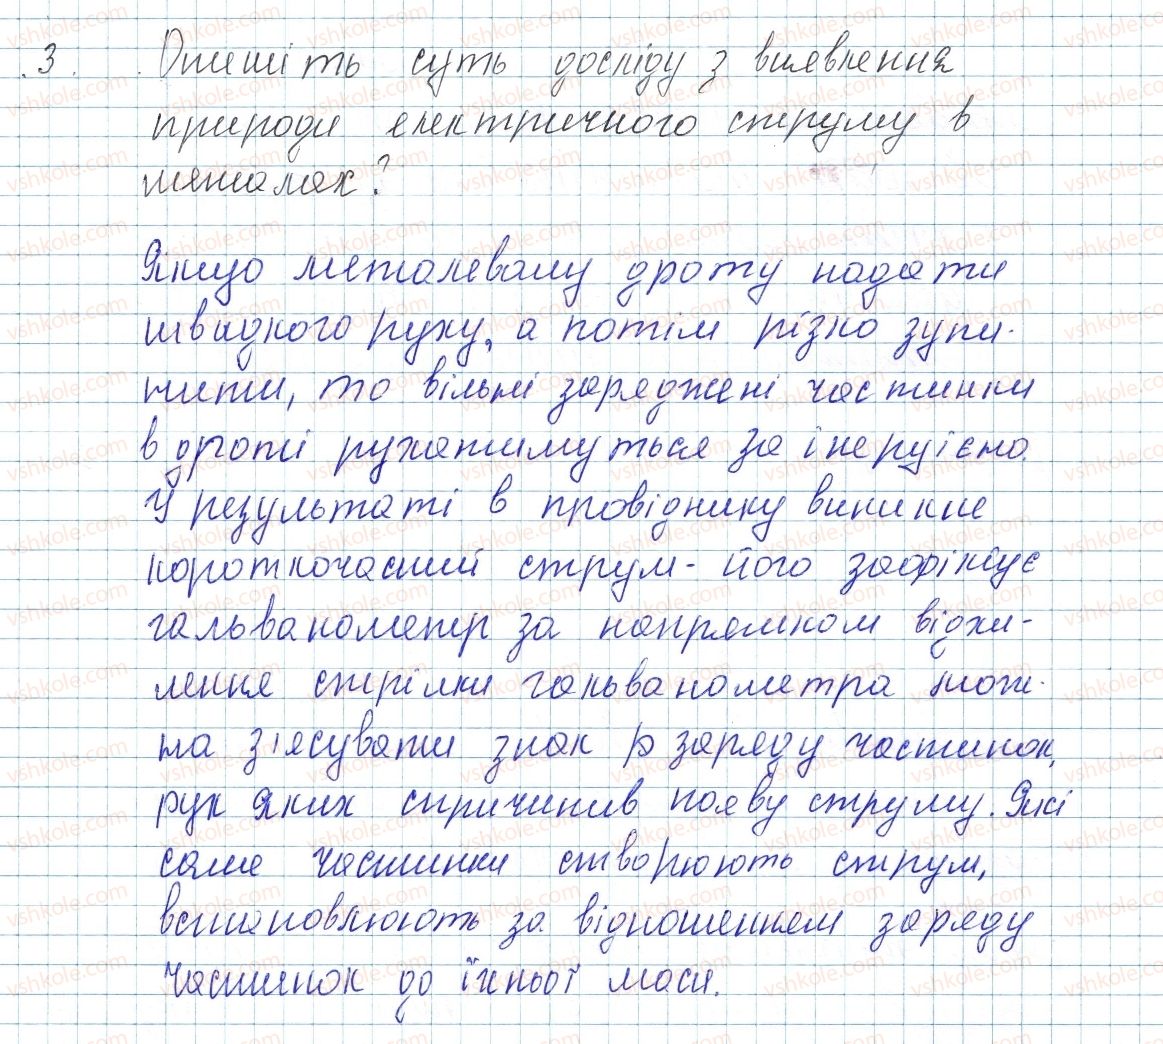 3. Опишіть суть досліду з виявлення
природи електричного струму в
металах?
Якщо металевому дроту надати
швидкого руху, а потім різко зупи-
нити, то вільні заряджені частинки
в дроті рухатимуться за інерцією.
У результаті в провіднику виникне
короткочасний струм - його зафіксує
гальванометр за напрямком відхи-
лення стрілки гальванометра мож-
на з'ясувати знак заряду частинок,
рух яких спричинив появу струму. Які
саме частинки створюють струм,
встановлюють за відношенням заряду
частинок до їхньої маси.